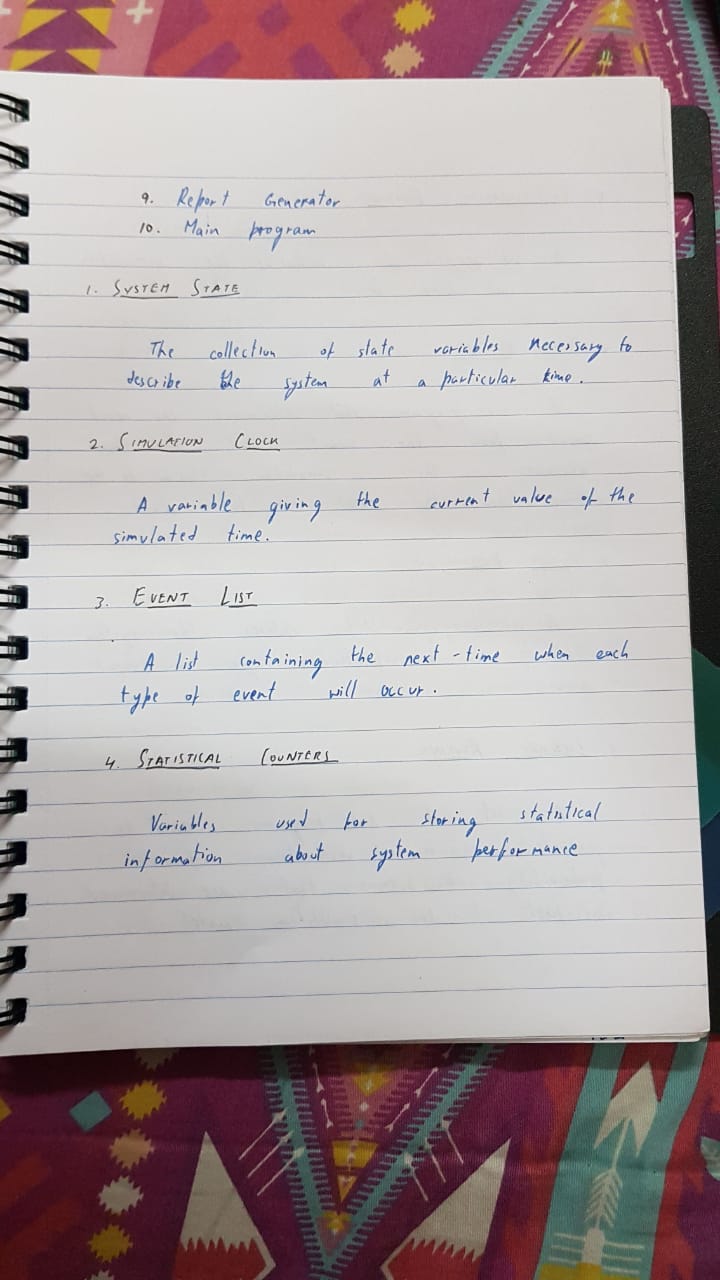 9. Report Generator
10. Main program
1. SYSTEM STATE
The collection of state variables necessary to
describe the system at a particular time.
2. SIMULATION CLOCK
A variable giving the current value of the
simulated time.
3. EVENT LIST
A list containing the next-time when each
type of event will occur.
4. STATISTICAL COUNTERS
Variables used for storing statistical
information about system performance